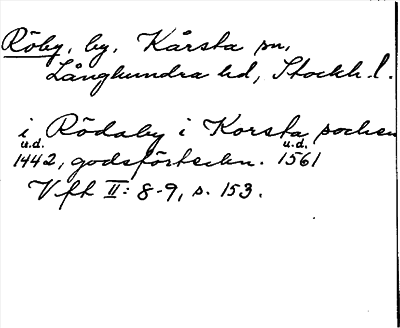 Röby, by, Kårsta sn,
Långhundra hd, Stockh. l.
i Rödaby i Korsta sochen
u.d. u.d.
1442, godsförteckn. 1561
Vft II: 8-9, s. 153.